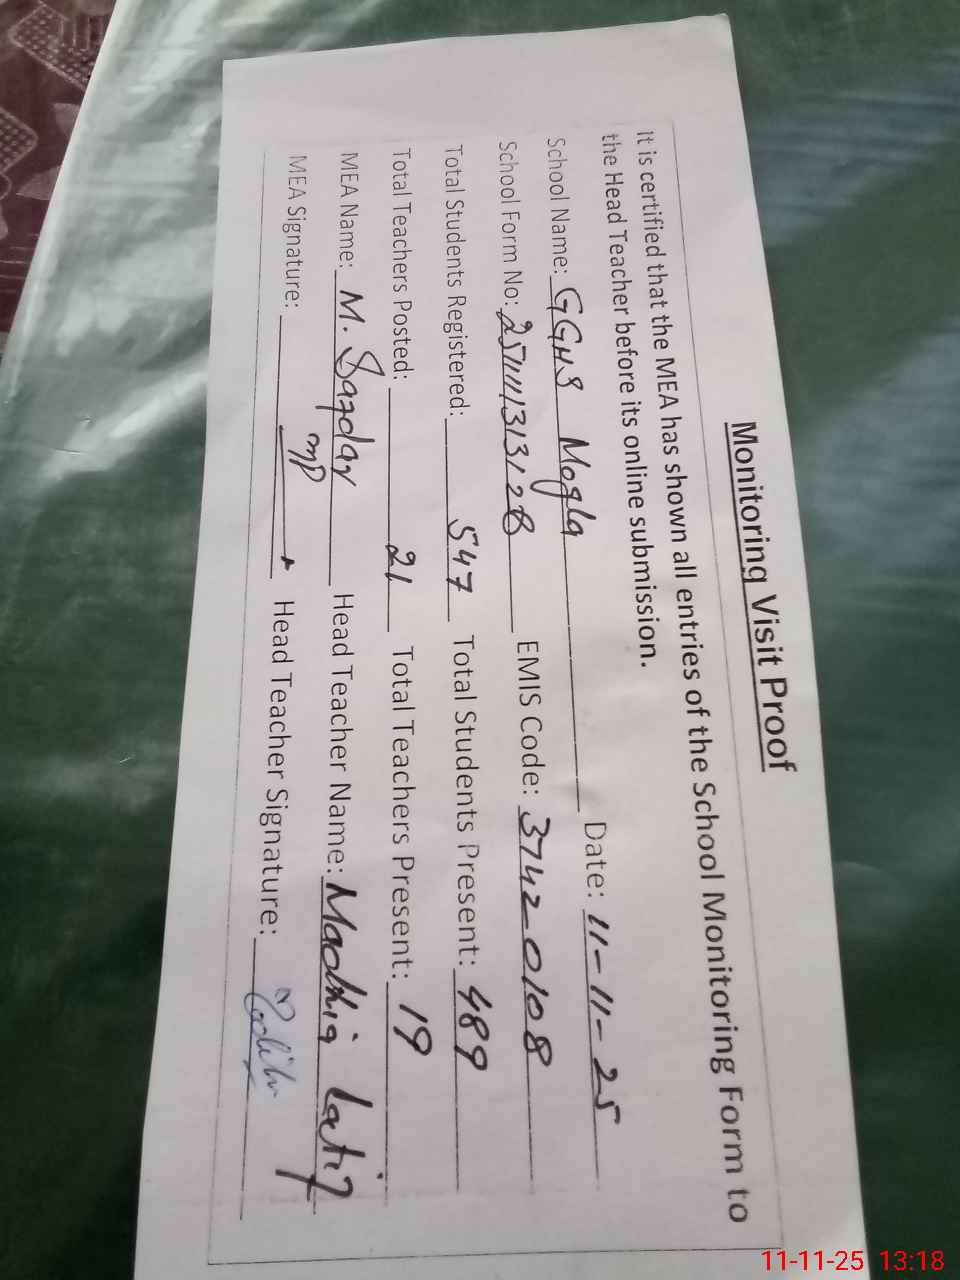 Monitoring Visit Proof
It is certified that the MEA has shown all entries of the School Monitoring Form to
the Head Teacher before its online submission.
School Name: GGHS Mogla Date: 11-11-25
School Form No: EMIS Code: 37420108
Total Students Registered: 547 Total Students Present: 489
Total Teachers Posted: 21 Total Teachers Present: 19
MEA Name: M. Safdar Head Teacher Name: Madhia Latif
MEA Signature: Head Teacher Signature:
11-11-25 13:18